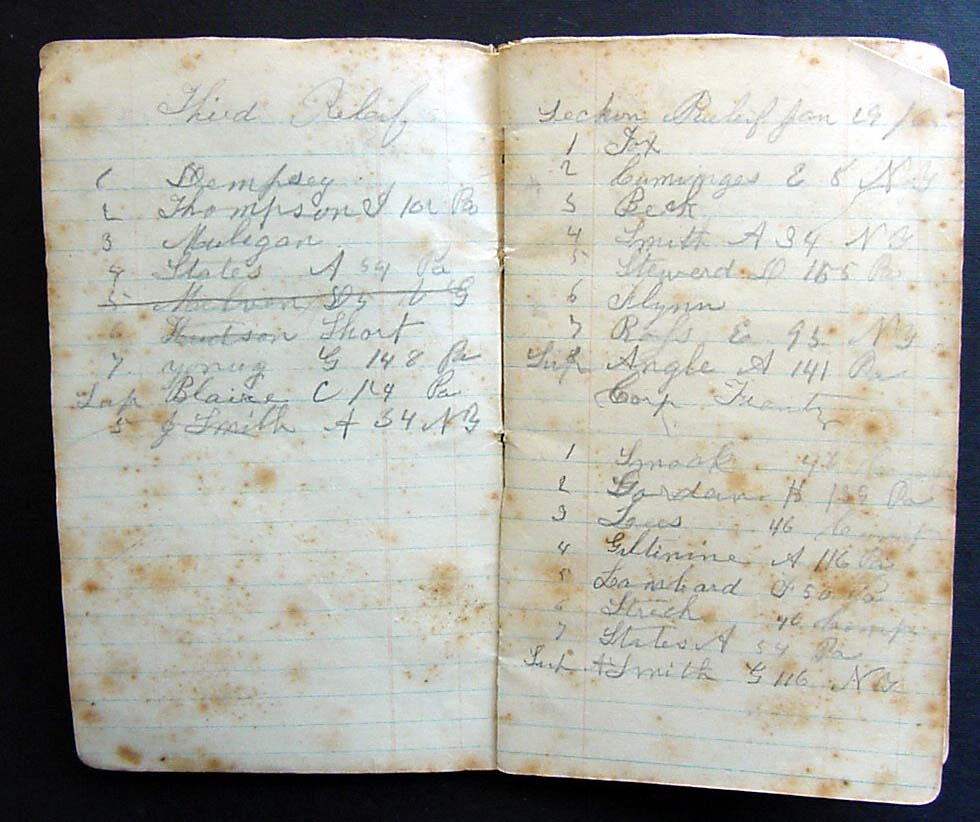 Third Relief
1 Dempsey
2 Thompson I 102 Pa
3 Muligan
4 States A 54 Pa
5 D5 G
6 Hudson Short
7 G 148 Pa
Sup Blaire C 174 Pa
5 J Smith A 34 N Y
Seckon Relief Jan 29
1 Fox
2 Cuminges E 8 N Y
3 Beck
4 Smith A 34 N Y
5 Steward D 155 Pa
6 Flynn
7 Ross E 93 N Y
Sup Angle A 141 Pa
Corp Frantz
1 Smoak
2 Gordan H 139 Pa
3 46
4 Giltinine A 116 Pa
5 50 Pa
6 46
7 States A 54 Pa
Sup Smith G 116 N Y